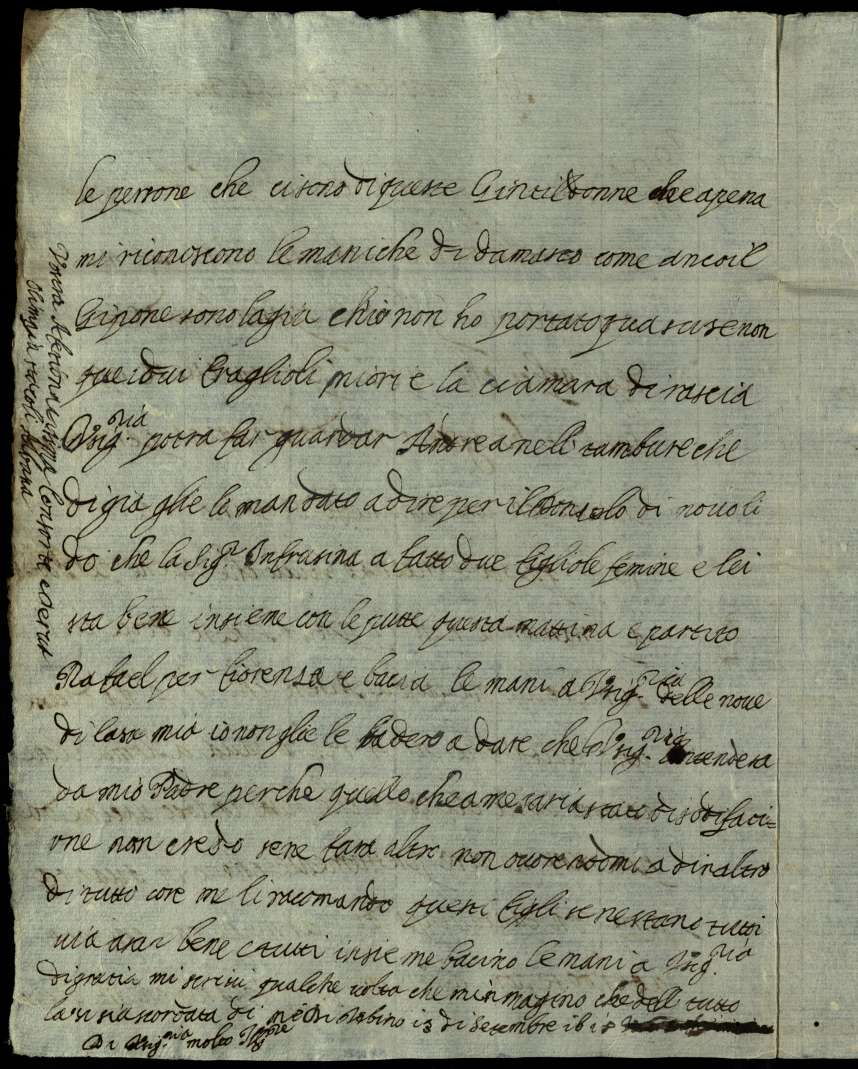 le persone che ci sono di queste Gintildonne che apena
mi riconoscono le maniche di damasco come anco il
Gipone sono lagia chio non ho portato qua suso se non
quei dui fraglioli miori e la ciamara di rascia
Vsig.ria potra far guardar Andrea neli tambure che
di gia glie lo mandato a dire per il Consolo di novoli
do che la Sig.ra Infrasina a fatto due figliole femine e lei
sta bene insieme con le putte questa mattina e partito
Rafael per fiorensa e bacia le mani a Vsig.ria delle nove
di Casa mia io non glie le sadero a dare che Vsig.ria intendera
da mio Padre perche quello che a me saria stato di sodisfaci=
one non credo sene fara altro non ocorendomi a dir altro
di tutto core me li racomando questi figli se ne stano tutti
via asai bene e tutti insieme bacino le mani a Vsig.ria
di gratia mi scrivi qualche volta che minmagino che dell tutto
la si sia scordata di me Di Urbino 13 di Setembre
Di Vsig.ria molto Ill.re